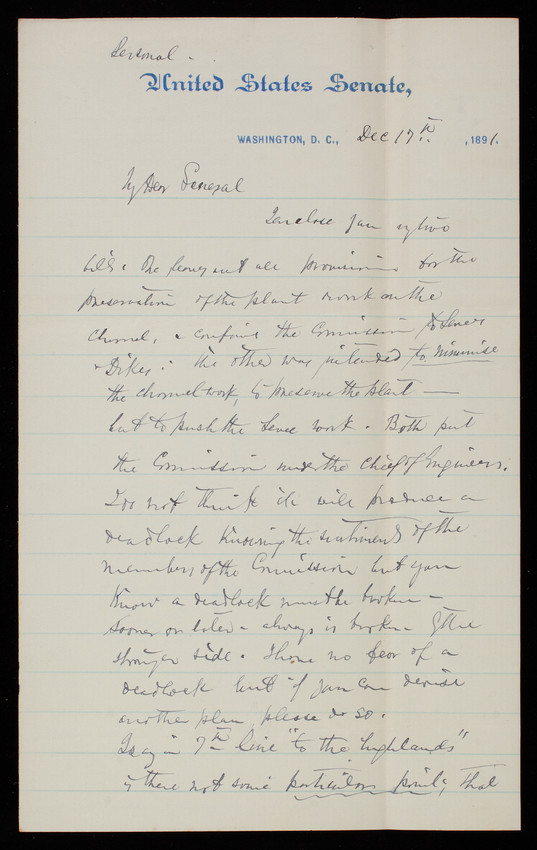 Personal -
United States Senate,
WASHINGTON, D. C., Dec 17th, 1891.
My Dear General
I enclose you my two
bills. One leaves out all provisions for the
preservation of the plant & work on the
channel, & confines the Commission to Levees
& Dikes. The other was intended to minimise
the channel work, to preserve the plant —
but to push the Levee work. Both put
the Commission under the Chief of Engineers.
I do not think it will produce a
deadlock knowing the sentiments of the
members of the Commission but you
know a deadlock must be broken —
sooner or later - always is broken by the
stronger side. I have no fear of a
deadlock but if you can devise
another plan please do so.
I say in 7th line "to the highlands"
is there not some particular point, that